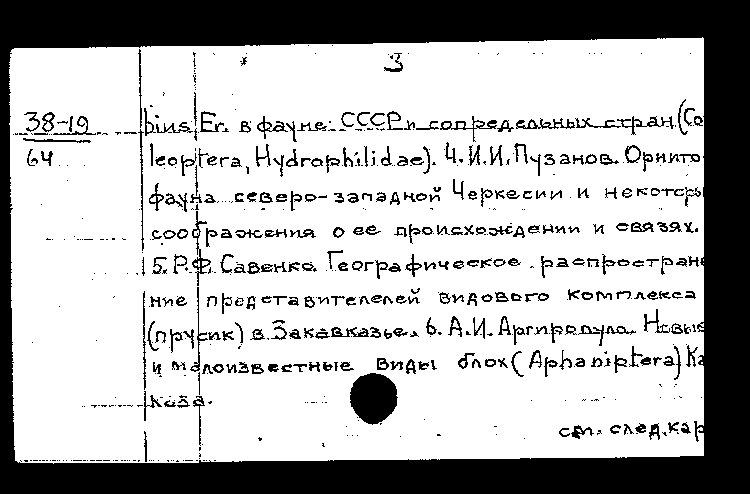 3
38-19
64
bius Er. в фауне СССР и сопредельных стран (Co
leoptera, Hydrophilidae). 4. И.И. Пузанов. Орнито-
фауна северо-западной Черкесии и некоторы
соображения о ее происхождении и связях.
5. Р.Ф. Савенко. Географическое распростране
ние представителелей видового комплекса
(прусик) в Закавказье. 6. А.И. Аргиропуло. Новые
и малоизвестные виды блох (Aphaniptera) Ка
каза.
см. след. кар